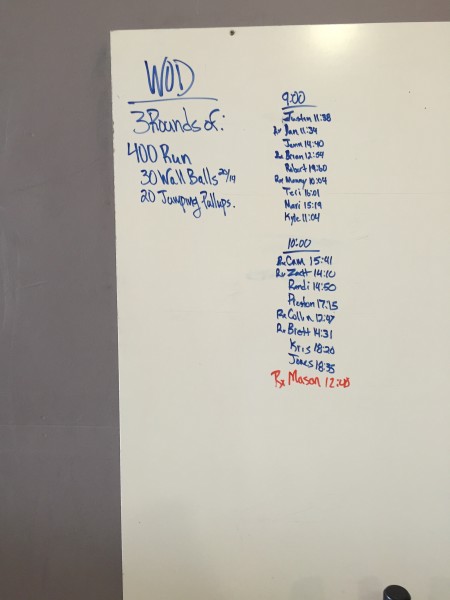 WOD
3 Rounds of:
400 Run
30 Wall Balls 20/14
20 Jumping Pullups.
9:00
Justin 11:38
Rx Dan 11:34
Jenn 14:40
Rx Brian 12:54
Robert 19:50
Rx Manny 10:04
Teri 15:01
Mari 15:19
Kyle 11:04
10:00
Rx Cam 15:41
Rx Zach 14:10
Randi 14:50
Preston 17:15
Rx Collin 12:47
Rx Brett 14:31
Kris 18:20
Jones 18:35
Rx Mason 12:48